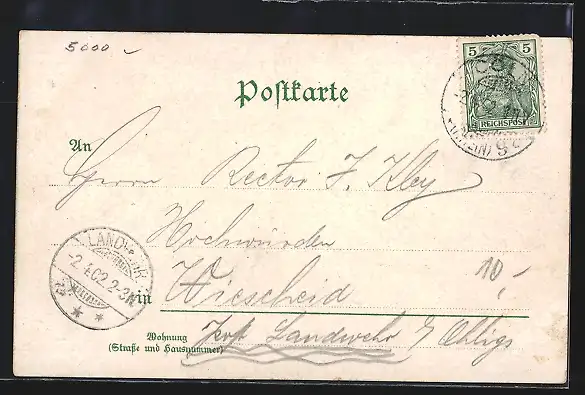 5000
5 5
REICHSPOST
CÖLN
(RHEIN)
Postkarte
An
Herrn Rector F. Kley
Hochwürden
LANDWEHR
-2.4.02.2-3N
10,-
in Wiescheid
Wohnung
(Straße und Hausnummer)
Post Landwehr b/ Ohligs